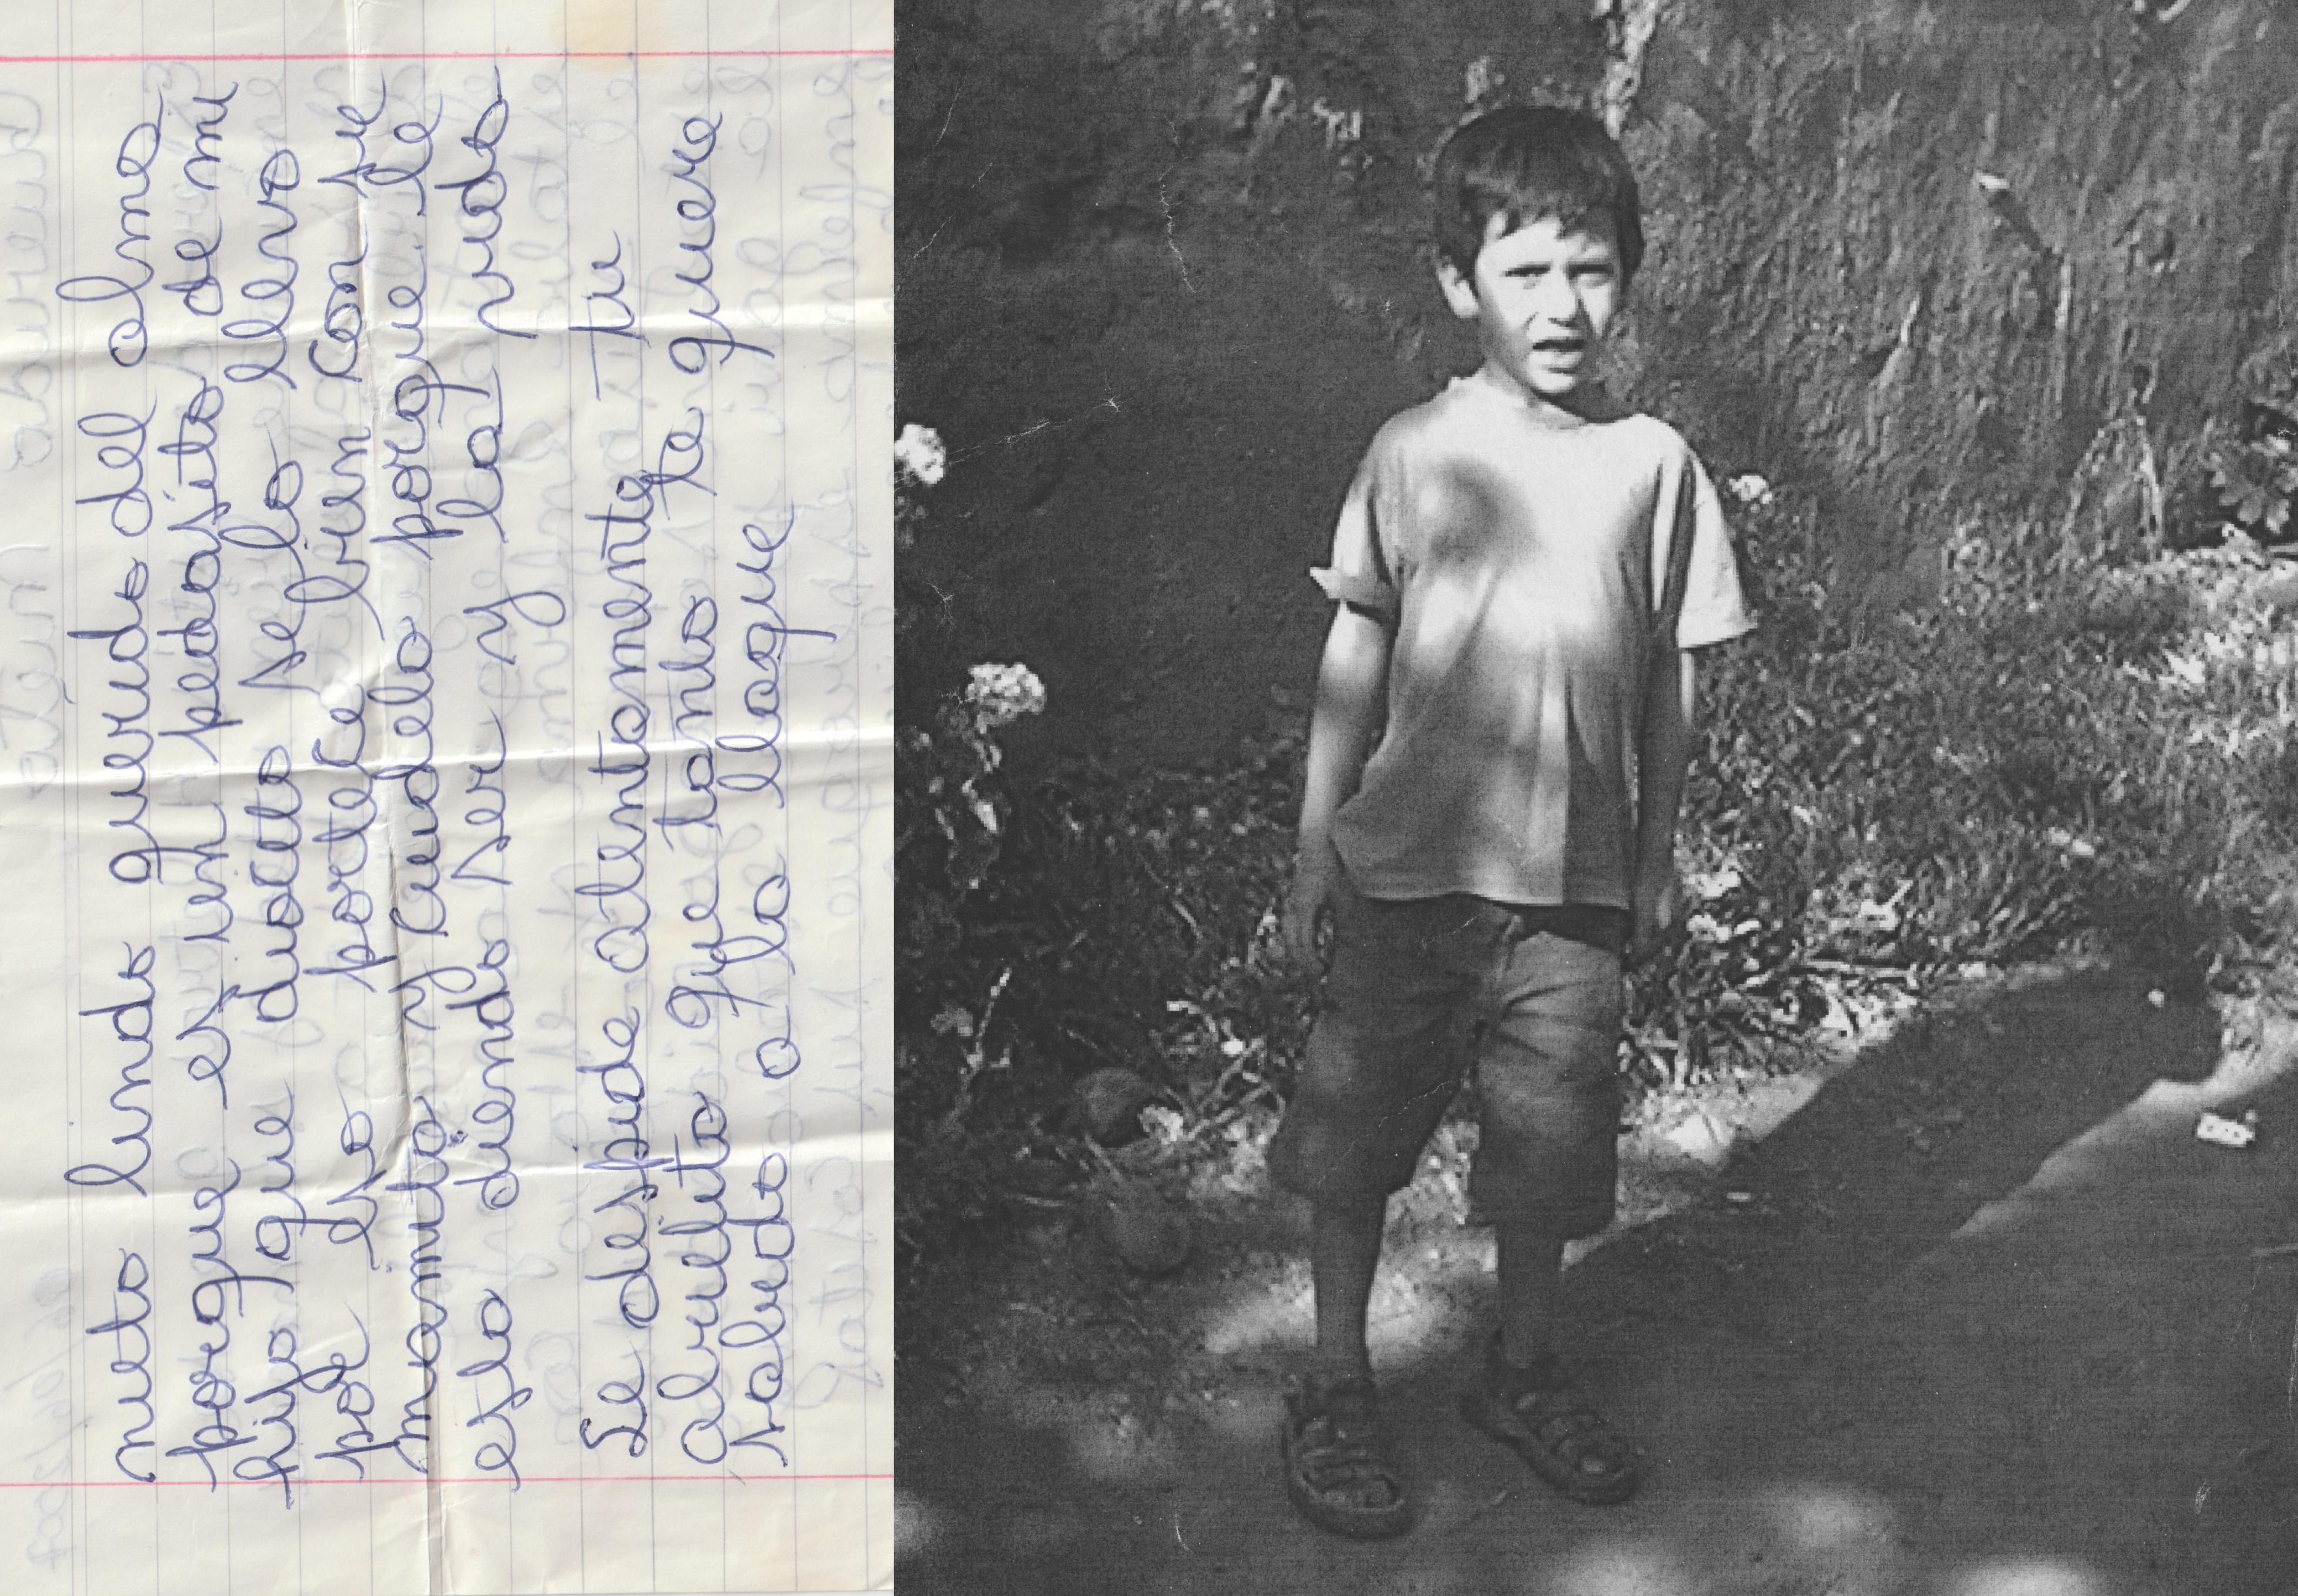 nieto lindo querido del alma
porque es un pedasito de mi
hijo que diocito se lo llevo
por eso portece bien con su
mamita y cuidela porque le
esta diendo ser y la vida
Se despide atentamente tu
abuelito que tanto te quiere
saludo a la